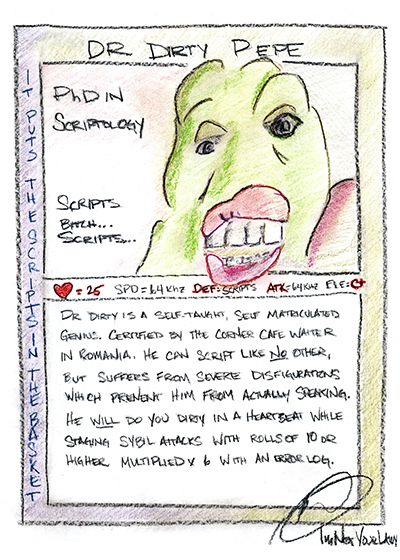 DR DIRTY PEPE
IT PUTS THE SCRIPTS IN THE BASKET
PHD IN
SCRIPTOLOGY
SCRIPTS
BITCH...
SCRIPTS...
= 25 SPD = 6.4 KHZ DEF = SCRIPTS ATK = 64 KHZ ELE = C+
DR DIRTY IS A SELF-TAUGHT, SELF MATRICULATED
GENIUS. CERTIFIED BY THE CORNER CAFE WAITER
IN ROMANIA. HE CAN SCRIPT LIKE NO OTHER,
BUT SUFFERS FROM SEVERE DISFIGURATIONS
WHICH PREVENT HIM FROM ACTUALLY SPEAKING.
HE WILL DO YOU DIRTY IN A HEARTBEAT WHILE
STAGING SYBIL ATTACKS WITH ROLLS OF 10 OR
HIGHER MULTIPLIED X 6 WITH AN ERROR LOG.